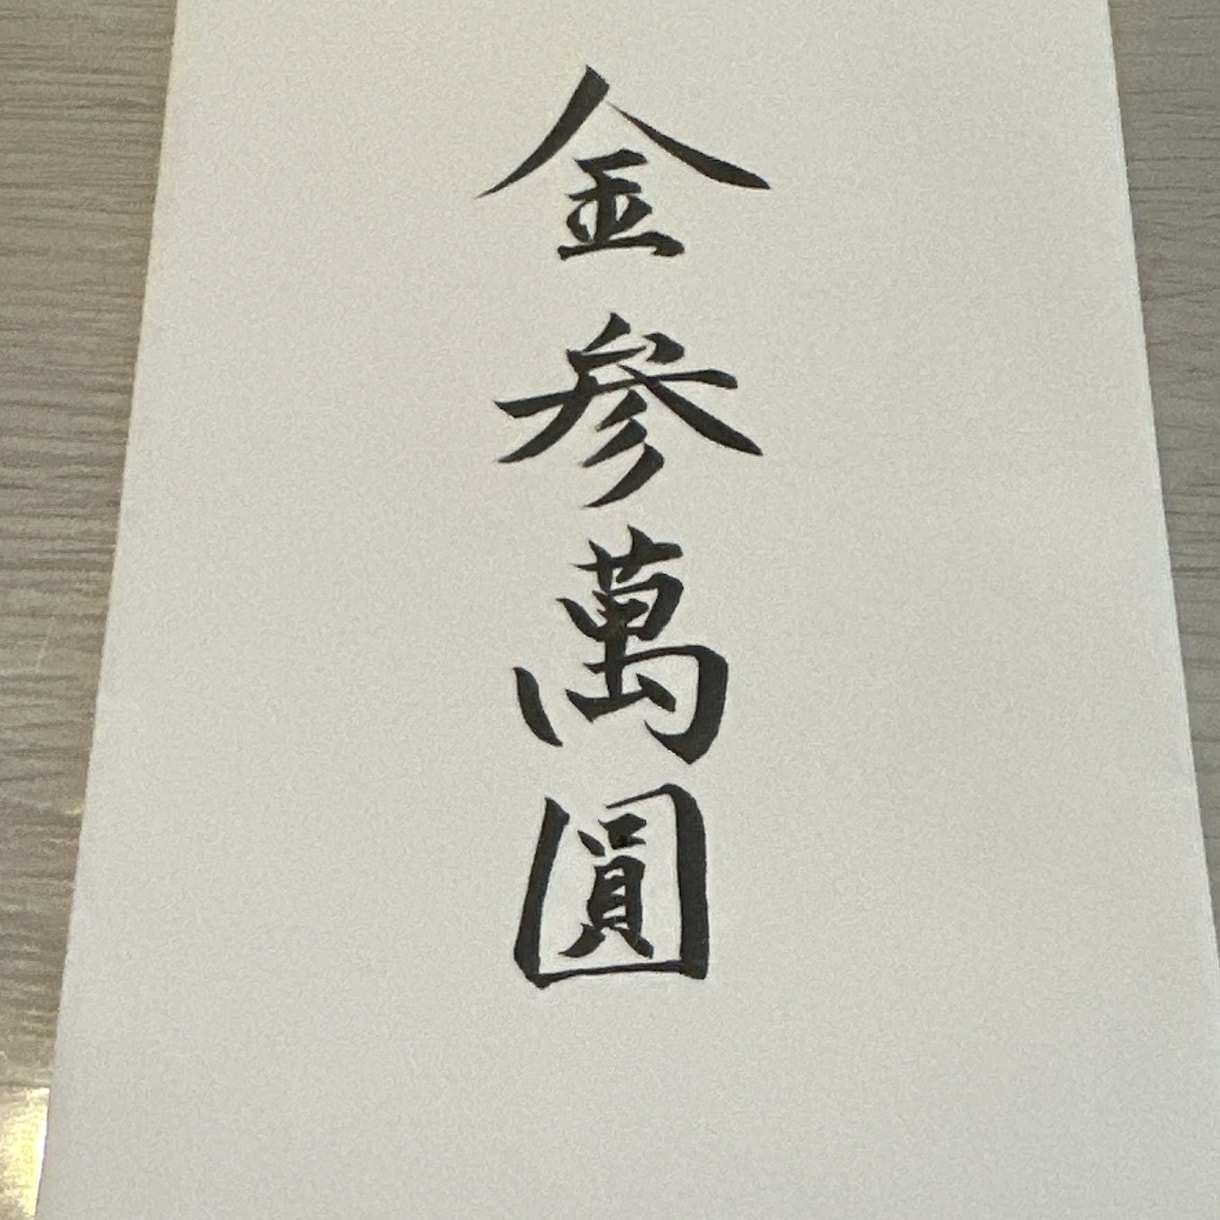 金参萬圓